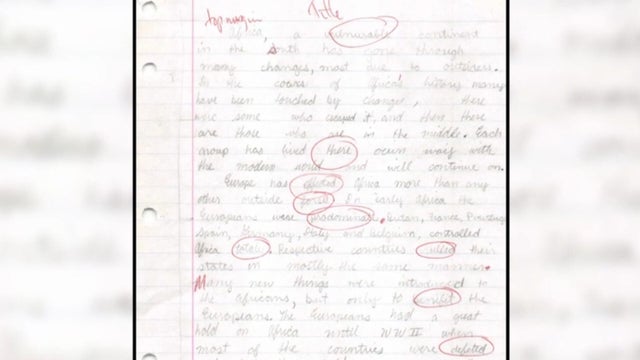 top margin Title
Africa, a vulnerable continent
in the south has gone through
many changes, most due to outsiders.
In the course of Africa's history many
have been touched by changes, there
are some who escaped it, and then there
are those who are in the middle. Each
group has lived there own way with
the modern world and will continue on.
Europe has effected Africa more than any
other outside force. In early Africa the
Europeans were
Spain, Germany, Italy and Belguim, controlled
Africa totaly. Respective countries rulled their
states in mostly the same manner.
Many new things were introduced to
the africans, but only to the
Europeans. The Europeans had a great
hold on Africa until WW II when
most of the countries were defeted